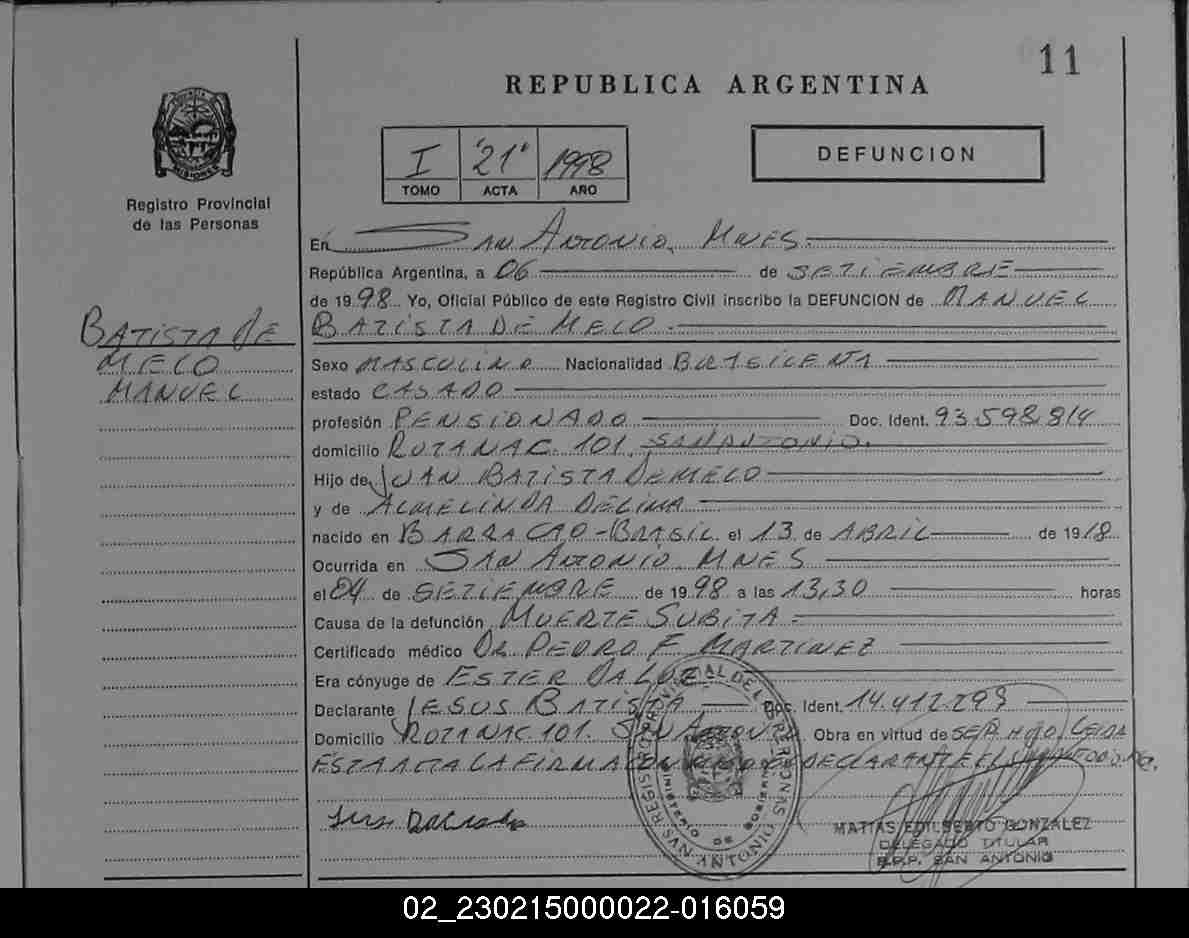 11
REPUBLICA ARGENTINA
I "21" 1998
TOMO ACTA AÑO
DEFUNCION
MISIONES
Registro Provincial
de las Personas
BATISTA DE
MELO
MANUEL
En SAN ANTONIO, MNES.
República Argentina, a 06 de SETIEMBRE
de 1998 Yo, Oficial Público de este Registro Civil inscribo la DEFUNCION de MANUEL
BATISTA DE MELO.
Sexo MASCULINO Nacionalidad BRASILEÑA
estado CASADO
profesión PENSIONADO Doc. Ident. 93.598.814
domicilio RUTA NAC. 101, SAN ANTONIO.
Hijo de JUAN BATISTA DE MELO
y de ALMELINDA DELIMA
nacido en BARRACAO-BRASIL el 13 de ABRIL de 1918
Ocurrida en SAN ANTONIO MNES
el 04 de SETIEMBRE de 1998 a las 13,30 horas
Causa de la defunción MUERTE SUBITA.
Certificado médico DR. PEDRO F. MARTINEZ
Era cónyuge de ESTER DA LUZ
Declarante JESUS BATISTA Doc. Ident. 14.412.293
Domicilio RUTA NAC 101. SAN ANTONIO Obra en virtud de SER HIJO, LEIDA
ESTA ACTA LA FIRMA CONMIGO EL DECLARANTE
REGISTRO PROVINCIAL DE LAS PERSONAS
MINISTERIO DE GOBIERNO
SAN ANTONIO
MATIAS EDILBERTO GONZALEZ
DELEGADO TITULAR
R.P.P. SAN ANTONIO
02_230215000022-016059